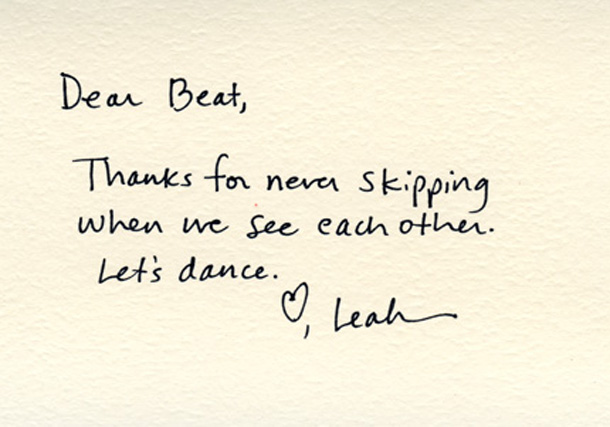 Dear Beat,
Thanks for never skipping
when we see each other.
Let's dance.
♡, Leah